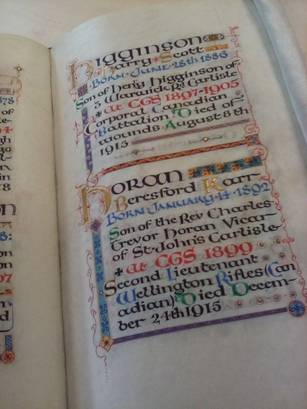 Higginson
Harry Scott
Born June 28th 1886
Son of Haig Higginson of
5 Warwick Rd Carlisle
At CGS 1897-1905
Corporal Canadian
Battalion Died of
wounds August 8th
1915
Horan
Beresford Karr
Born January 14 1892
Son of the Rev Charles
Trevor Horan Vicar
of St John's Carlisle
At CGS 1899
Second Lieutenant
Wellington Rifles (Can
adian) Died Decem-
ber 24th 1915